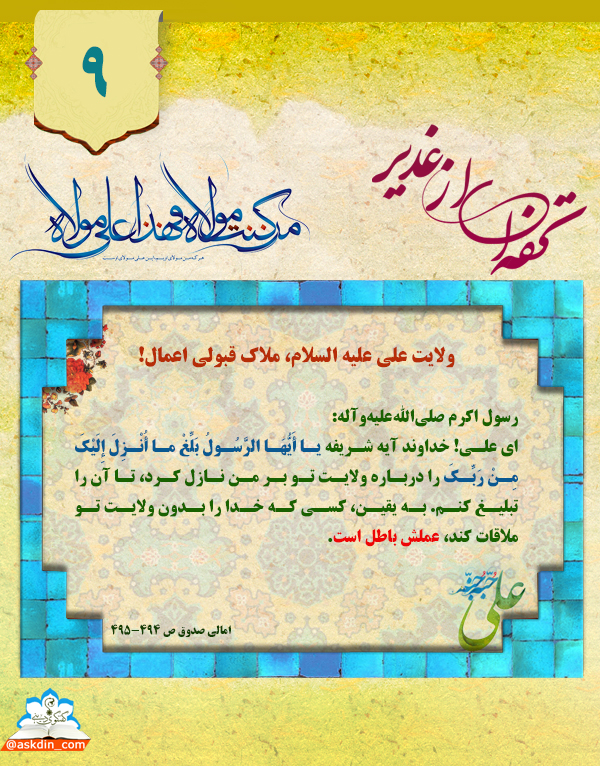 ۹
تحفه‌ای از غدیر
من کنت مولاه و هذا علی مولاه
هر که من مولای اویم این علی مولای اوست
ولایت علی علیه السلام، ملاک قبولی اعمال!
رسول اکرم صلی‌الله‌علیه‌وآله:
ای علی! خداوند آیه شریفه یا أَیُّهَا الرَّسُولُ بَلِّغْ ما أُنْزِلَ إِلَیْکَ
مِنْ رَبِّکَ را درباره ولایت تو بر من نازل کرد، تا آن را
تبلیغ کنم. به یقین، کسی که خدا را بدون ولایت تو
ملاقات کند، عملش باطل است.
علی حبه جنة
امالی صدوق ص ۴۹۴-۴۹۵
@askdin_com